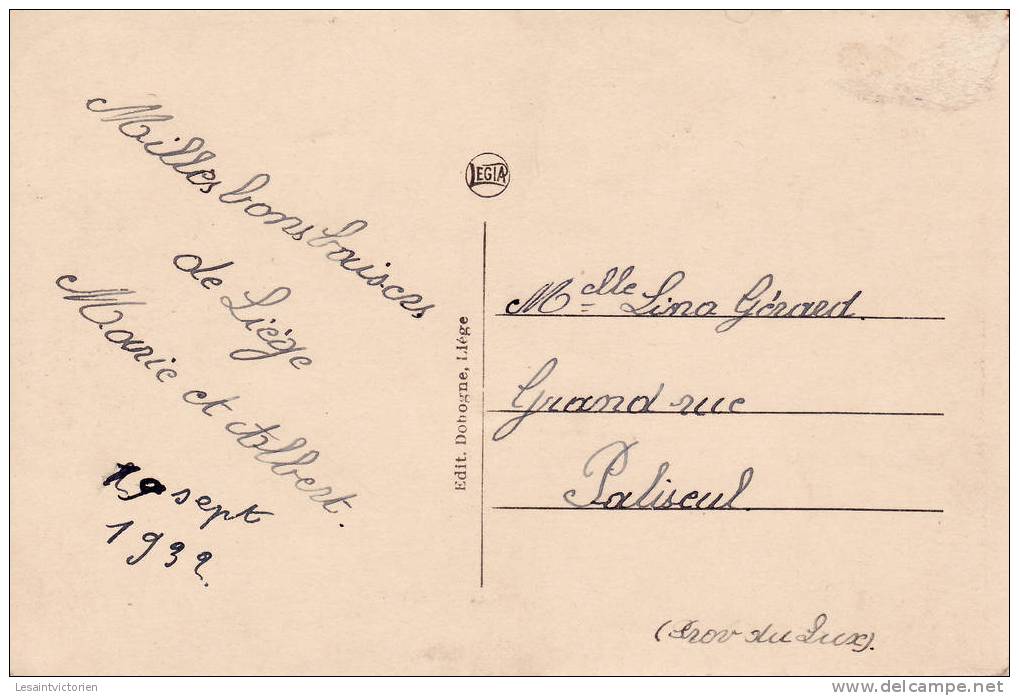 Milles bons baisers
de Liége
Marie et Albert.
19 sept
1932.
LEGIA
Edit. Dobogne, Liége
Melle Lina Gérard.
Grand rue
Paliseul.
(Prov du Lux).
Lesaintvictorien
www.delcampe.net